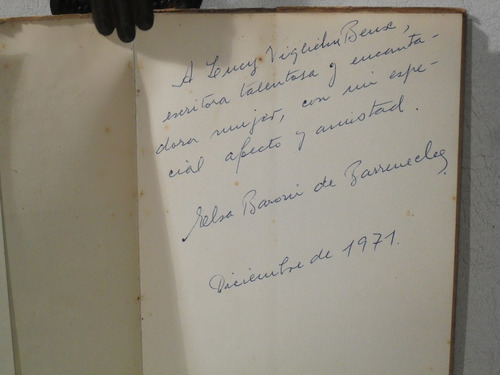 A Lucy Viglione Beux,
escritora talentosa y encanta-
dora mujer, con mi espe-
cial afecto y amistad.
Elsa Baroni de Barrenechea
Diciembre de 1971.